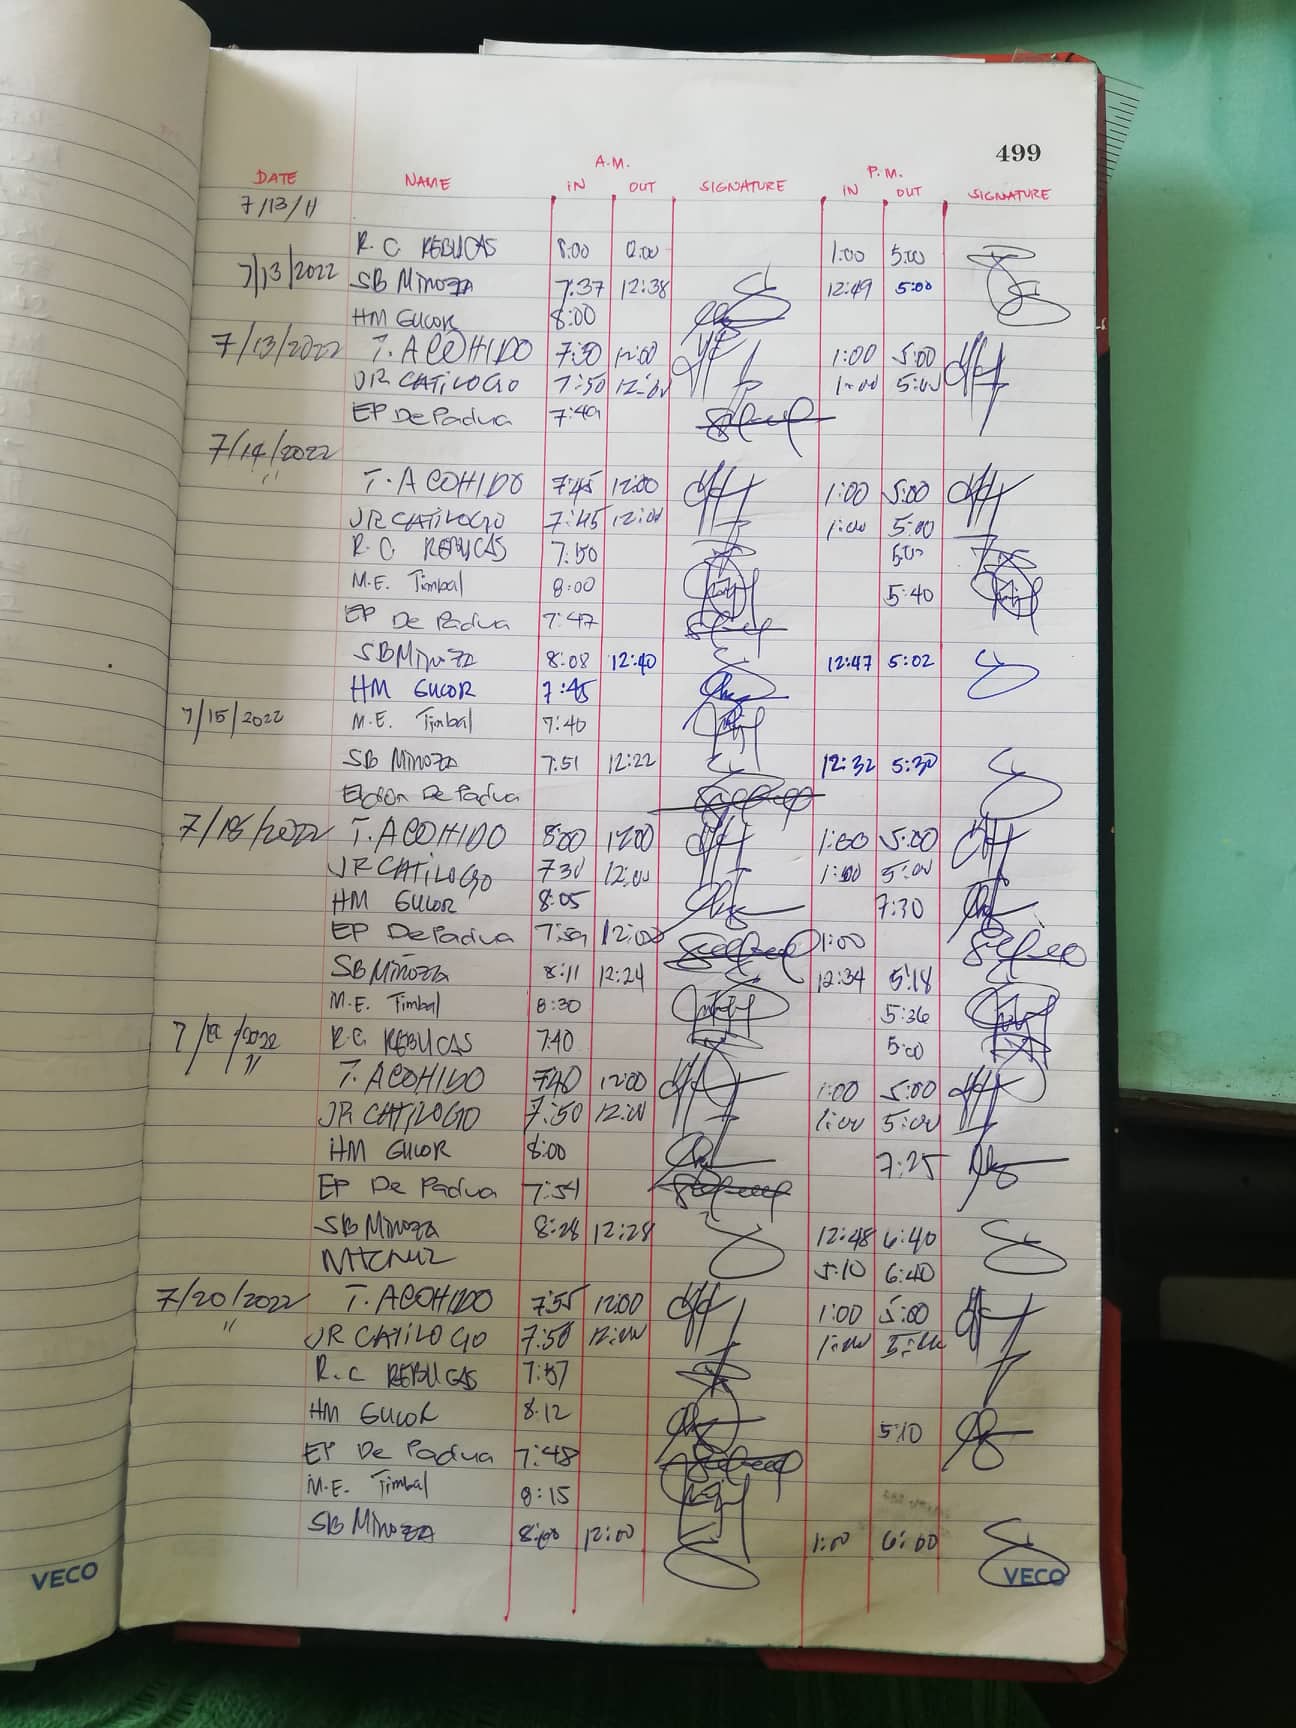 499
A.M. P.M.
DATE NAME IN OUT SIGNATURE IN OUT SIGNATURE
7/13/11
R.C. REBUCAS 8:00 12:00 1:00 5:00
7/13/2022 SB Minoza 7:37 12:38 12:49 5:00
HM GUCOR 8:00
7/13/2022 T. ACOHIDO 7:30 12:00 1:00 5:00
JR CATILOGO 7:50 12:00 1:00 5:00
EP De Padua 7:49
7/14/2022
T. ACOHIDO 7:45 12:00 1:00 5:00
JR CATILOGO 7:45 12:00 1:00 5:00
R.C. REBUCAS 7:50 5:00
M.E. Timbal 8:00 5:40
EP De Padua 7:47
SB Minoza 8:08 12:40 12:47 5:02
HM GUCOR 7:45
7/15/2022 M.E. Timbal 7:40
SB Minoza 7:51 12:22 12:32 5:30
De Padua
7/18/2022 T. ACOHIDO 8:00 12:00 1:00 5:00
JR CATILOGO 730 12:00 1:00 5:00
HM GUCOR 8:05 7:30
EP De Padua 7:59 12:00 1:00
SB Minoza 8:11 12:24 12:34 5:18
M.E. Timbal 8:30 5:36
7/19/2022 R.C. REBUCAS 7:40 5:00
" T. ACOHIDO 7:40 12:00 1:00 5:00
JR CATILOGO 7:50 12:00 1:00 5:00
HM GUCOR 8:00 7:25
EP De Padua 7:54
SB Minoza 8:28 12:28 12:48 6:40
5:10 6:40
7/20/2022 T. ACOHIDO 7:55 12:00 1:00 5:00
" JR CATILOGO 7:50 12:00 1:00 5:00
R.C REBUCAS 7:57
HM GUCOR 8:12 5:10
EP De Padua 7:48
M.E. Timbal 8:15
SB Minoza 8:00 12:00 1:00 6:00
VECO VECO